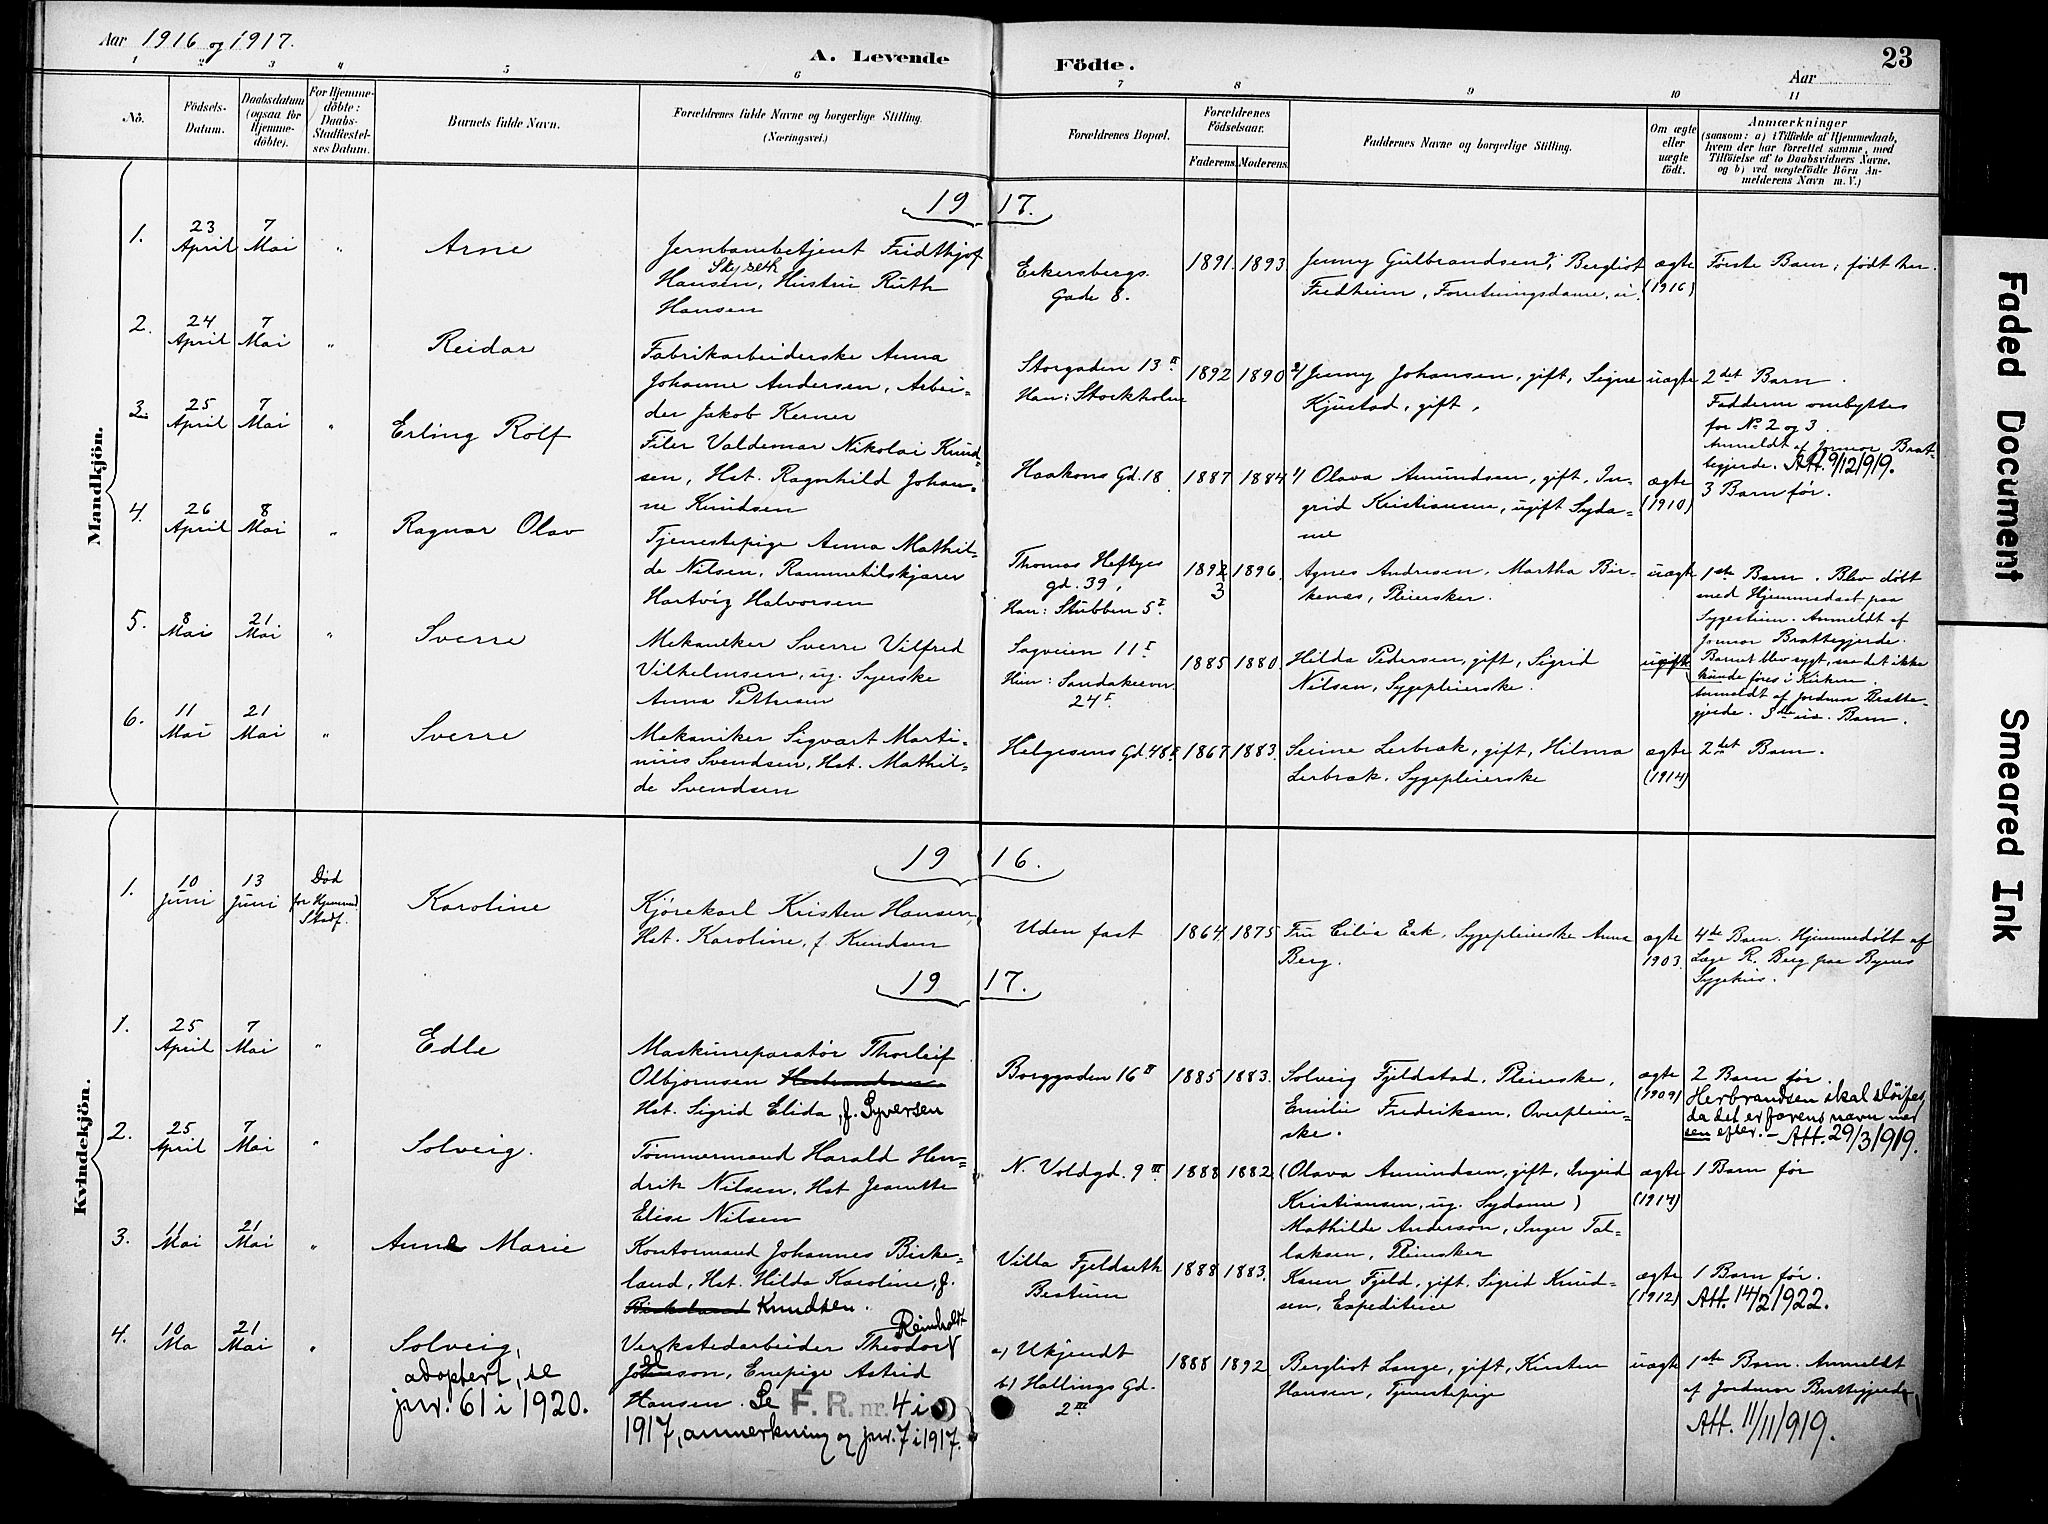 Aar 1916 og 1917.
A. Levende Födte.
Aar
23
1 2 3 4 5 6 7 8 9 10 11
No.
Födsels-
Datum.
Daabsdatum
(ogsaa for
Hjemme-
döbte).
For Hjemme-
döbte:
Daabs-
Stadfæstel-
ses Datum.
Barnets fulde Navn.
Forældrenes fulde Navne og borgerlige Stilling.
(Næringsvei.)
Forældrenes Bopæl.
Forældrenes
Födselsaar.
Faderens.
Moderens.
Faddernes Navne og borgerlige Stilling.
Om ægte
eller
uægte
födt.
Anmærkninger
(saasom: a) i Tilfælde af Hjemmedaab,
hvem der har forrettet samme, med
Tilföielse af to Daabsvidners Navne.
og b) ved uægtefödte Börn An-
melderens Navn m. V.)
Mandkjön.
1917.
1.
23 April
7 Mai
"
Arne
Jernbanebetjent Fridthjof
Skyseth
Hansen, Hustru Ruth
Hansen
Eckersbergs
Gade 8.
1891. 1893
Jenny Gulbrandsen, Bergliot
Fredheim, Forretningsdame, ü.
ægte
(1916)
Første Barn, født her.
2.
24 April
7 Mai
"
Reidar
Fabrikarbeiderske Anna
Johanne Andersen, Arbei-
der Jakob Kerner
Storgaden 13 II
Han: Stockholm
1892 1890
2/ Jenny Johansen, gift, Signe
Kjustad, gift,
uægte
2det Barn.
Fadderne ombyttes
for No 2 og 3.
Anmeldt af Jormor Brat-
tegjerde. Att. 9/12 1919.
3.
25 April
7 Mai
"
Erling Rolf
Filer Valdemar Nikolai Knud-
sen, Hst. Ragnhild Johan-
ne Knudsen
Haakons Gd. 18
1887 1884
1/ Olava Amundsen, gift, In-
grid Kristiansen, ugift Syda-
me
ægte
(1910)
3 Barn før.
4.
26 April
8 Mai
"
Ragnar Olav
Tjenestepige Anna Mathil-
de Nilsen, Rammetilskjærer
Hartvig Halvorsen
Thomas Heftyes
gd. 39,
Han: Stubben 5 I
1892 1896.
3
Agnes Andresen, Martha Bir-
kenæs, Pleiersker.
uægte
1ste Barn. Blev døbt
med Hjemmedaab paa
Sygestuen. Anmeldt af
Jormor Brattegjerde.
5.
8 Mai
21 Mai
"
Sverre
Mekaniker Sverre Vilfred
Vilhelmsen, ug. Syerske
Anna Pettersen
Sagveien 11 I
Hun: Sandakerv.
24 I
1885 1880
Hilda Pedersen, gift, Sigrid
Nilsen, Sygepleierske.
ugifte
Barnet blev sygt, saa det ikke
kunde føres i Kirken.
Anmeldt af Jordmor Bratte-
gjerde. Barn.
6.
11 Mai
21 Mai
"
Sverre
Mekaniker Sigvart Marti-
nius Svendsen, Hst. Mathil-
de Svendsen
Helgesens Gd. 48
1867 1883.
Serine Lerbrak, gift, Hilma
Lerbrak, Sygepleierske
ægte
(1914)
2det Barn.
Kvindekjön.
1916.
1.
10 Juni
13 Juni
Død
for Hjemmed.
Stadf.
Karoline
Kjørekarl Kristen Hansen,
Hst. Karoline, f. Knudsen
Uden fast
1864 1875
Fru Cilia Eek, Sygepleierske Anna
Berg.
ægte
1903.
4de Barn. Hjemmedøbt af
Læge R. Berg paa Byens
Sygehus.
1917.
1.
25 April
7 Mai
"
Edle
Maskinreparatør Thorleif
Olbjørnsen Herbrandsen
Hst. Sigrid Elida, f. Syversen
Borggaden 16 II
1885 1883.
Solveig Fjeldstad, Pleierske,
Emilie Fredriksen, Overpleier-
ske.
ægte
(1909)
2 Barn før.
Herbrandsen skal sløifes,
da det er farens navn med
sen efter. – Att. 29/3 1919.
2.
25 April
7 Mai
"
Solveig.
Tømmermand Harald Hen-
drik Nilsen, Hst Jeanette
Elise Nilsen
N. Voldgd. 9 III
1888 1882
(Olava Amundsen, gift, Ingrid
Kristiansen, ug. Sydame)
Mathilde Anderson, Inger Tal-
laksen, Pleiersker
ægte
(1914)
1 Barn før
3.
11 Mai
21 Mai
"
Anne Marie
Kontormand Johannes Birke-
land, Hst. Hilda Karoline, f.
Birkeland Knudsen.
Villa Fjeldseth
Bestum
1888 1883.
Karen Fjeld, gift. Sigrid Knud-
sen, Expeditrice
ægte
(1912)
1 Barn før.
Att. 14/2 1922.
4.
10 Ma
21 Mai
"
Solveig,
adoptert, se
jnr. 61 i 1920.
Reinholdt
Verkstedarbeider Theodor
Johnson, Enepige Astrid
Hansen. Se F. R. nr. 4 i
1917, anmerkning og jnr. 7 i 1917.
a) Ukjendt
b) Hallings Gd.
2 III
1888 1892
Bergliot Lange, gift, Kirsten
Hansen, Tjenestepige
uægte
1ste Barn. Anmeldt
af Jordmor Brattegjerde
Att. 11/11 1919.
Faded Document
Smeared Ink